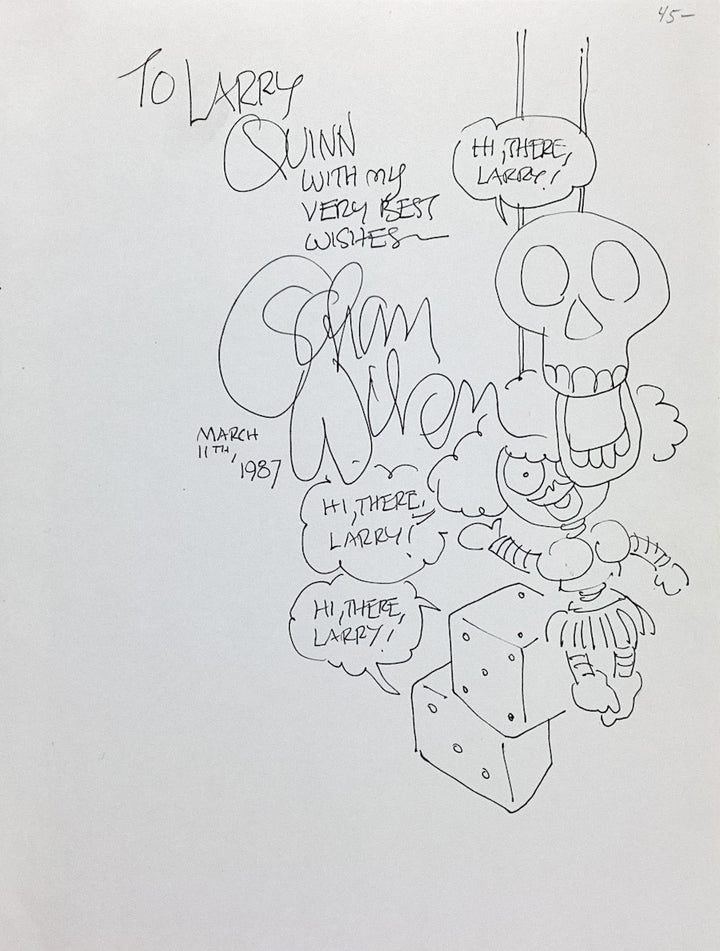 45-
TO LARRY
QUINN
WITH MY
VERY BEST
WISHES
HI, THERE,
LARRY!
MARCH
11TH,
1987
HI, THERE,
LARRY!
HI, THERE,
LARRY!